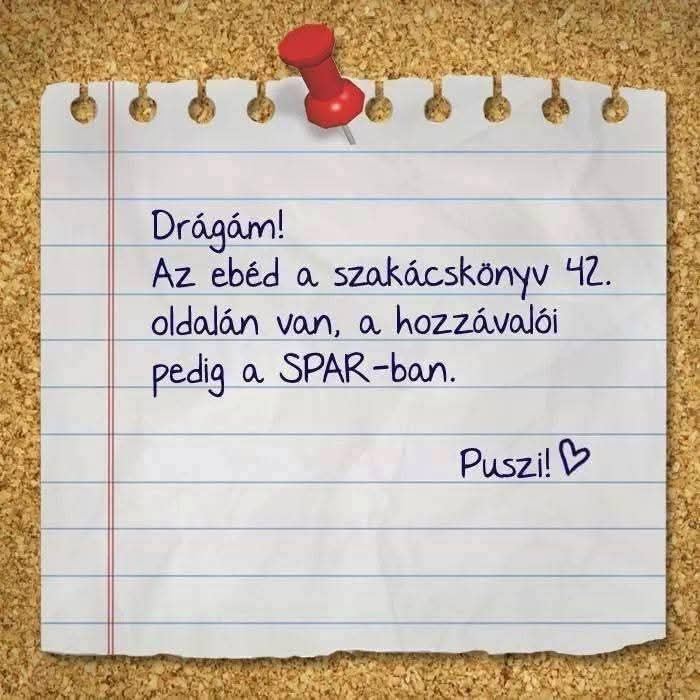 Drágám!
Az ebéd a szakácskönyv 42.
oldalán van, a hozzávalói
pedig a SPAR-ban.
Puszi!♡